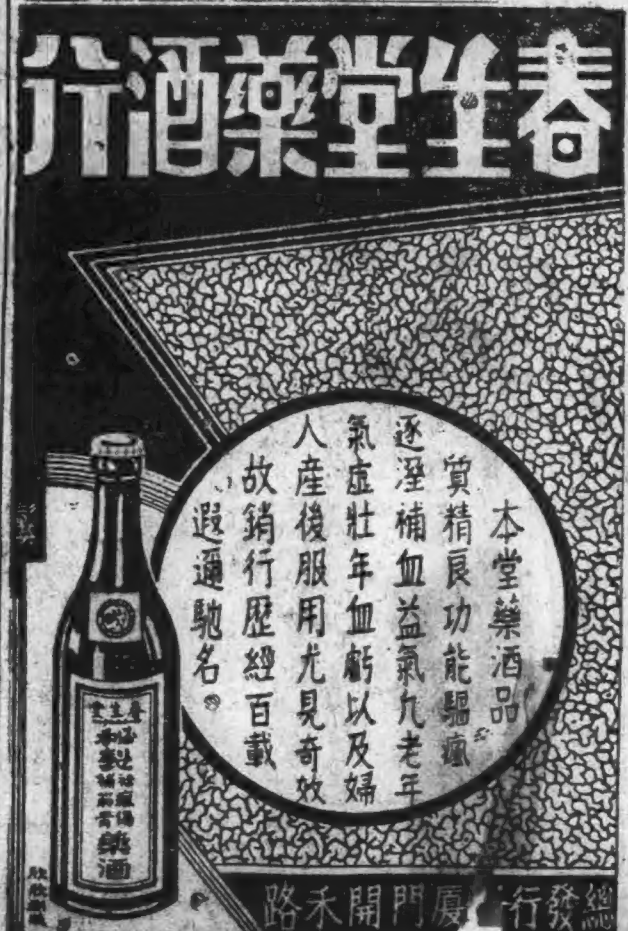 春生堂藥酒行
本堂藥酒品
質精良功能驅瘋
逐溼補血益氣凢老年
氣虛壯年血虧以及婦
人產後服用尤見奇效
故銷行歷經百載
遐邇馳名。
春生堂
藥酒
總發行 廈門開禾路